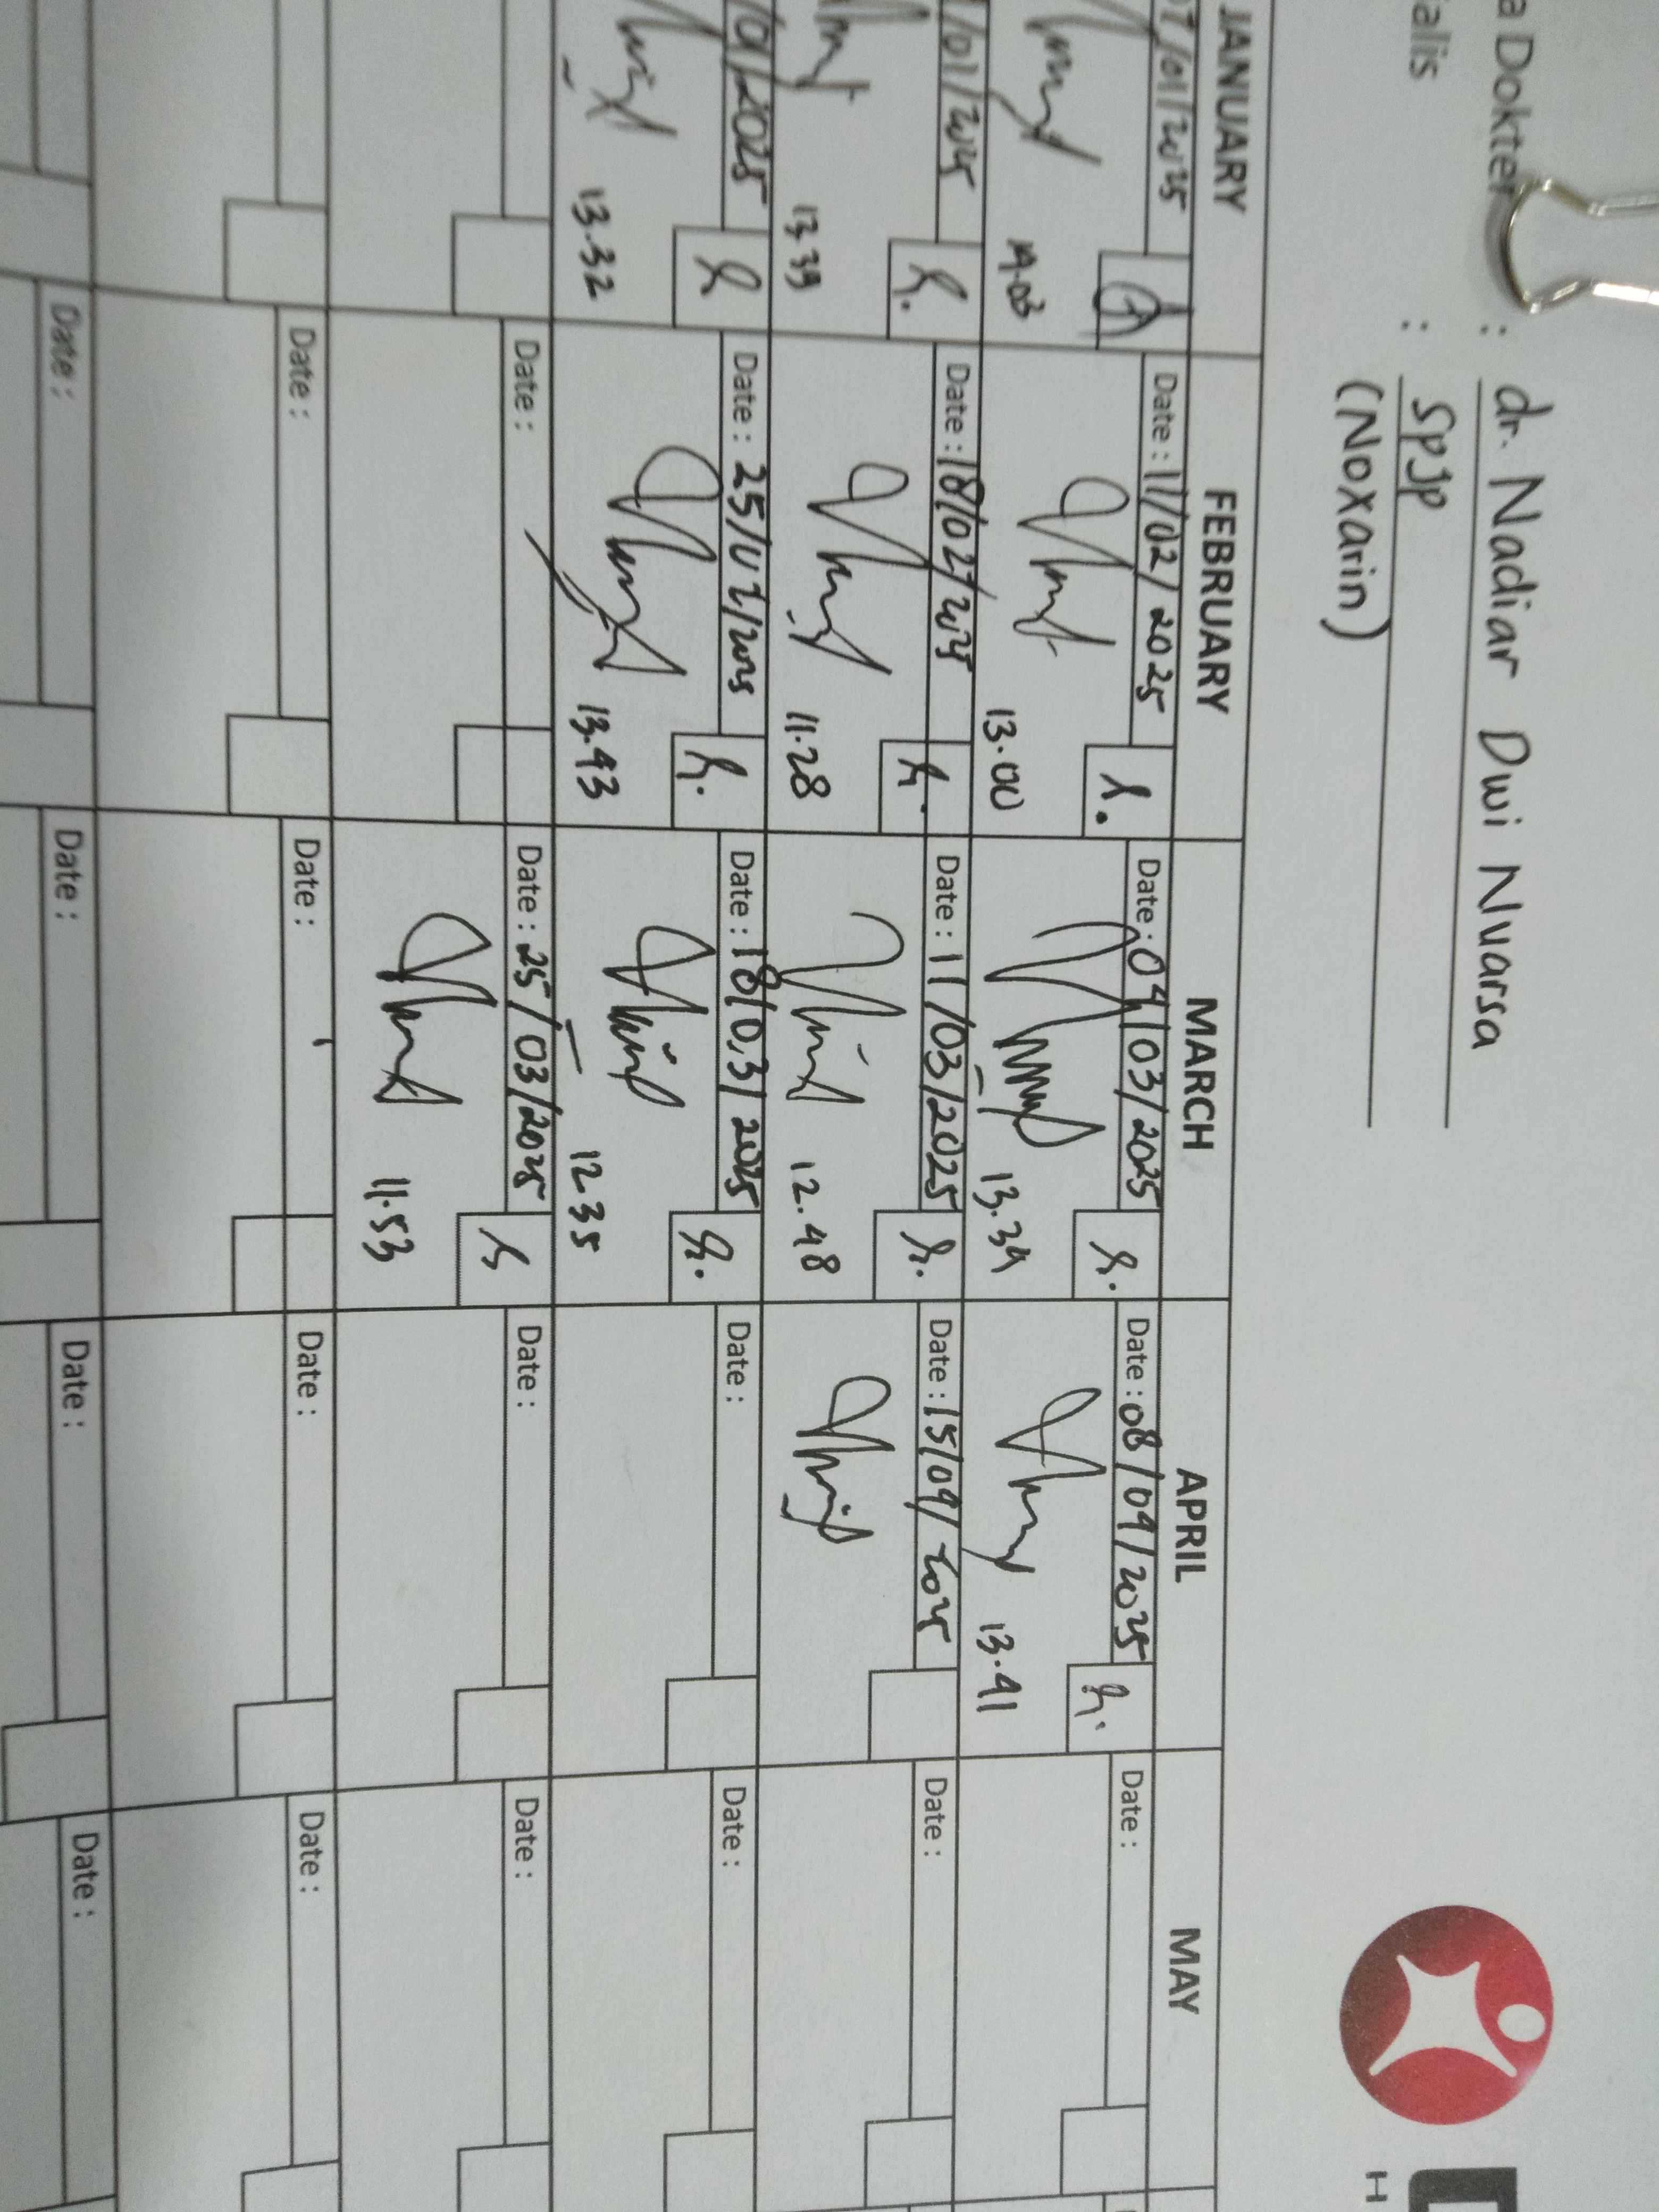 a Dokter : dr. Nadiar Dwi Nuarsa
alis : SpJP
(Noxarin)
H
JANUARY FEBRUARY MARCH APRIL MAY
07/01/2025 Date : 11/02/2025 Date : 04/03/2025 Date : 08/04/2025 Date :
14.03 13.00 13.34 13.41
/01/2025 Date : 18/02/2025 Date : 11/03/2025 Date : 15/04/2025 Date :
13.39 11.28 12.48
/01/2025 Date : 25/02/2025 Date : 18/03/2025 Date : Date :
13.32 13.43 12 35
Date : Date : 25/03/2025 Date : Date :
11.53
Date : Date : Date : Date :
Date : Date : Date : Date :